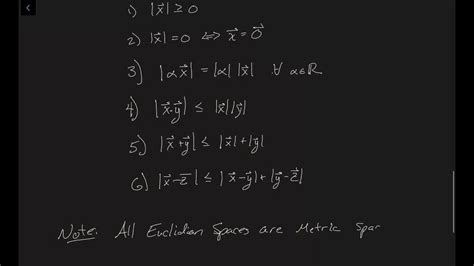 1) |x⃗| ≥ 0
2) |x⃗| = 0 ⟺ x⃗ = 0⃗
3) |αx⃗| = |α| |x⃗| ∀ α∈ℝ
4) |x⃗·y⃗| ≤ |x⃗||y⃗|
5) |x⃗+y⃗| ≤ |x⃗|+|y⃗|
6) |x⃗-z⃗| ≤ |x⃗-y⃗|+|y⃗-z⃗|
Note: All Euclidian Spaces are Metric Spac